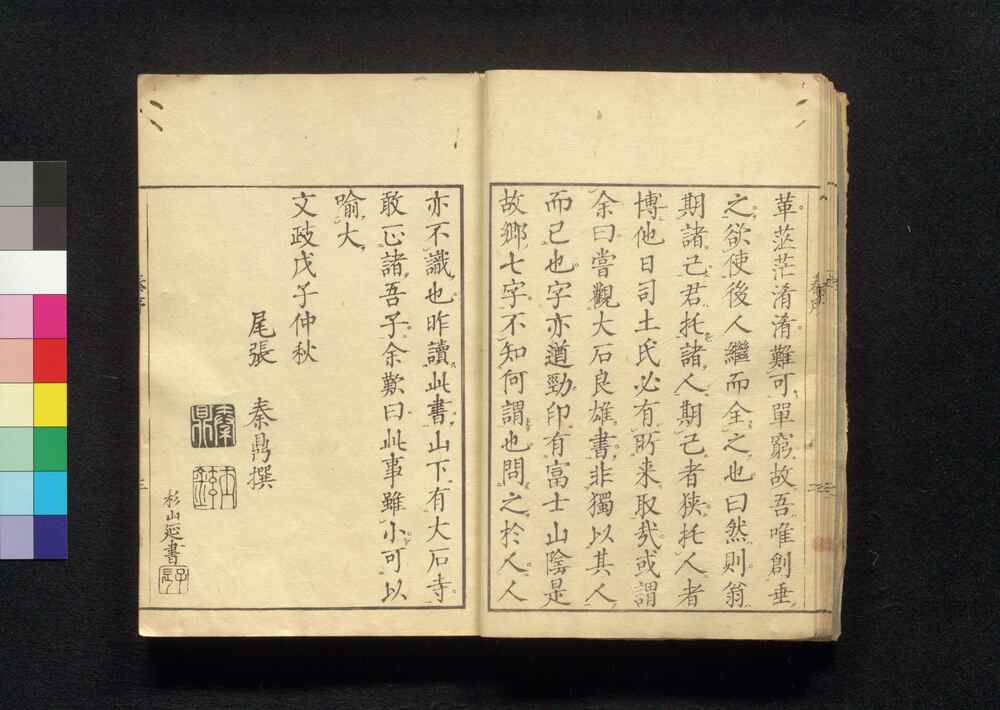 茫茫淆淆難可單窮故吾唯創垂
之欲使後人繼而全之也曰然則翁
期諸己君托諸人期己者狹托人者
博他日司土氏必有所来取哉或謂
余曰嘗觀大石良雄書非獨以其人
而已也字亦遒勁印有富士山陰是
故鄉七字不知何謂也問之於人人
亦不識也昨讀此書山下有大石寺
敢正諸吾子余歎曰此事雖小可以
喻大
文政戊子仲秋
尾張 秦鼎撰
秦鼎
杉山延書